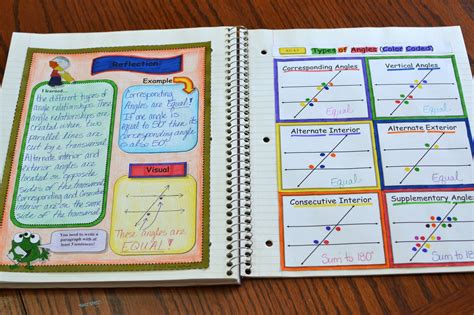 Reflection
I learned...
the different types of
angle relationships. These
angle relationships are
created when two
parallel lines are
cut by a transversal.
Alternate interior and
exterior angles are
located on opposite
sides of the transversal.
Corresponding and Consecutive
interior are on the same
side of the transversal.
You need to write a
paragraph with at
least 5 sentences!
Example
Corresponding
Angles are Equal!
If one angle is
equal to 50° then its
corresponding angle
is also 50°
Visual
These angles are
EQUAL!
Types of Angles (Color Coded)
Corresponding Angles
Equal
Vertical Angles
Equal
Alternate Interior
Equal
Alternate Exterior
Equal
Consecutive Interior
Sum to 180°
Supplementary Angles
Sum to 180°